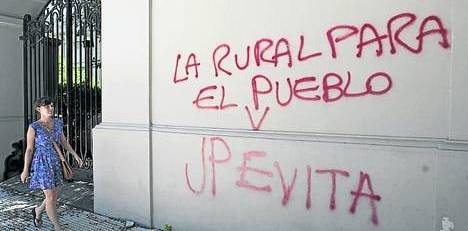 LA RURAL PARA
EL PUEBLO
V
JP EVITA